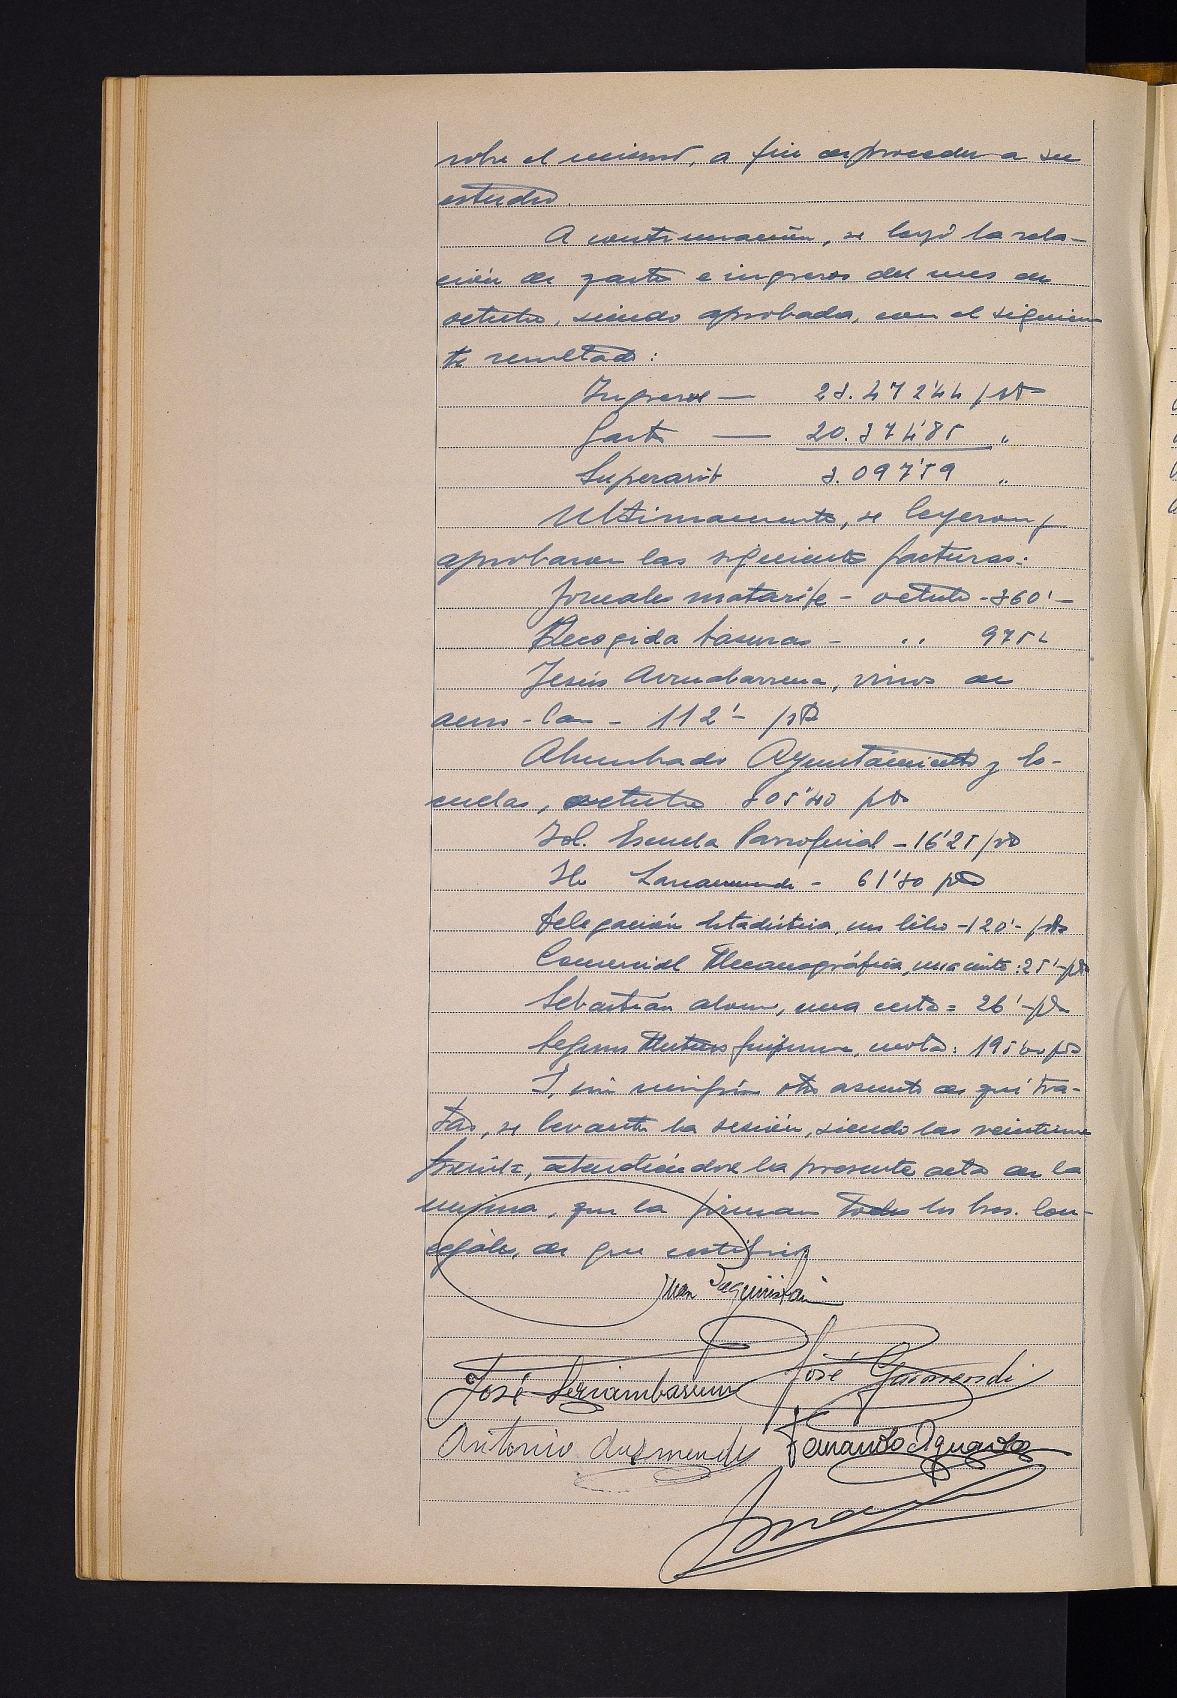 sobre el mismo, a fin de proceder a su
estudio.
A continuación, se leyó la rela-
ción de gastos e ingresos del mes de
octubre, siendo aprobada, con el siguien
te resultado:
Ingresos — 23.472'44 pts
Gastos — 20.374'85 "
Superavit 3.097'59 "
Ultimamente, se leyeron y
aprobaron las siguientes facturas:
Jornales matarife - octubre - 360'-
Recogida basuras - "
Jesús vinos de
112'- pts
Alumbrado Ayuntamiento y Es-
cuelas, octubre 305'40 pts
Id. Escuela Parroquial - 16'25 pts
Id. 61'30 pts
Delegación Estadística, un libro - 120'- pts
Comercial Mecanográfica, una cinta: 25'- pts
Sebastián una cesta = 26'- pts
Seguros cuota: pts
Y, sin ningún otro asunto de qué tra-
tar, se levanta la sesión, siendo las
treinta, extendiéndose la presente acta de la
misma, que la firman todos los Srs. Con-
cejales, de que certifico
Juan
José José Garmendi
Antonio Fernando